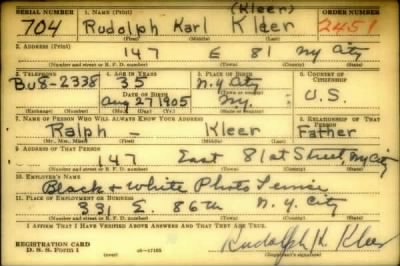 SERIAL NUMBER 1. NAME (Print) (Kleer) ORDER NUMBER
704 Rudolph Karl Kleer 2451
(First) (Middle) (Last)
2. ADDRESS (Print)
147 E 81 Ny City
(Number and street or R. F. D. number) (Town) (County) (State)
3. TELEPHONE 4. AGE IN YEARS 5. PLACE OF BIRTH 6. COUNTRY OF CITIZENSHIP
BU8-2338 35 N.Y. City
DATE OF BIRTH (Town or county) U.S.
Aug 27 1905 Ny.
(Exchange) (Number) (Mo.) (Day) (Yr.) (State or country)
7. NAME OF PERSON WHO WILL ALWAYS KNOW YOUR ADDRESS 8. RELATIONSHIP OF THAT PERSON
Ralph - Kleer Father
(Mr., Mrs., Miss) (First) (Middle) (Last)
9. ADDRESS OF THAT PERSON
147 East 81st Street, Ny City
(Number and street or R. F. D. number) (Town) (County) (State)
10. EMPLOYER'S NAME
Black & White Photo
11. PLACE OF EMPLOYMENT OR BUSINESS
331 E. 86th N. Y. City
(Number and street or R. F. D. number) (Town) (County) (State)
I AFFIRM THAT I HAVE VERIFIED ABOVE ANSWERS AND THAT THEY ARE TRUE.
REGISTRATION CARD
D. S. S. Form 1 16-17105 Rudolph K. Kleer
(Registrant's signature)